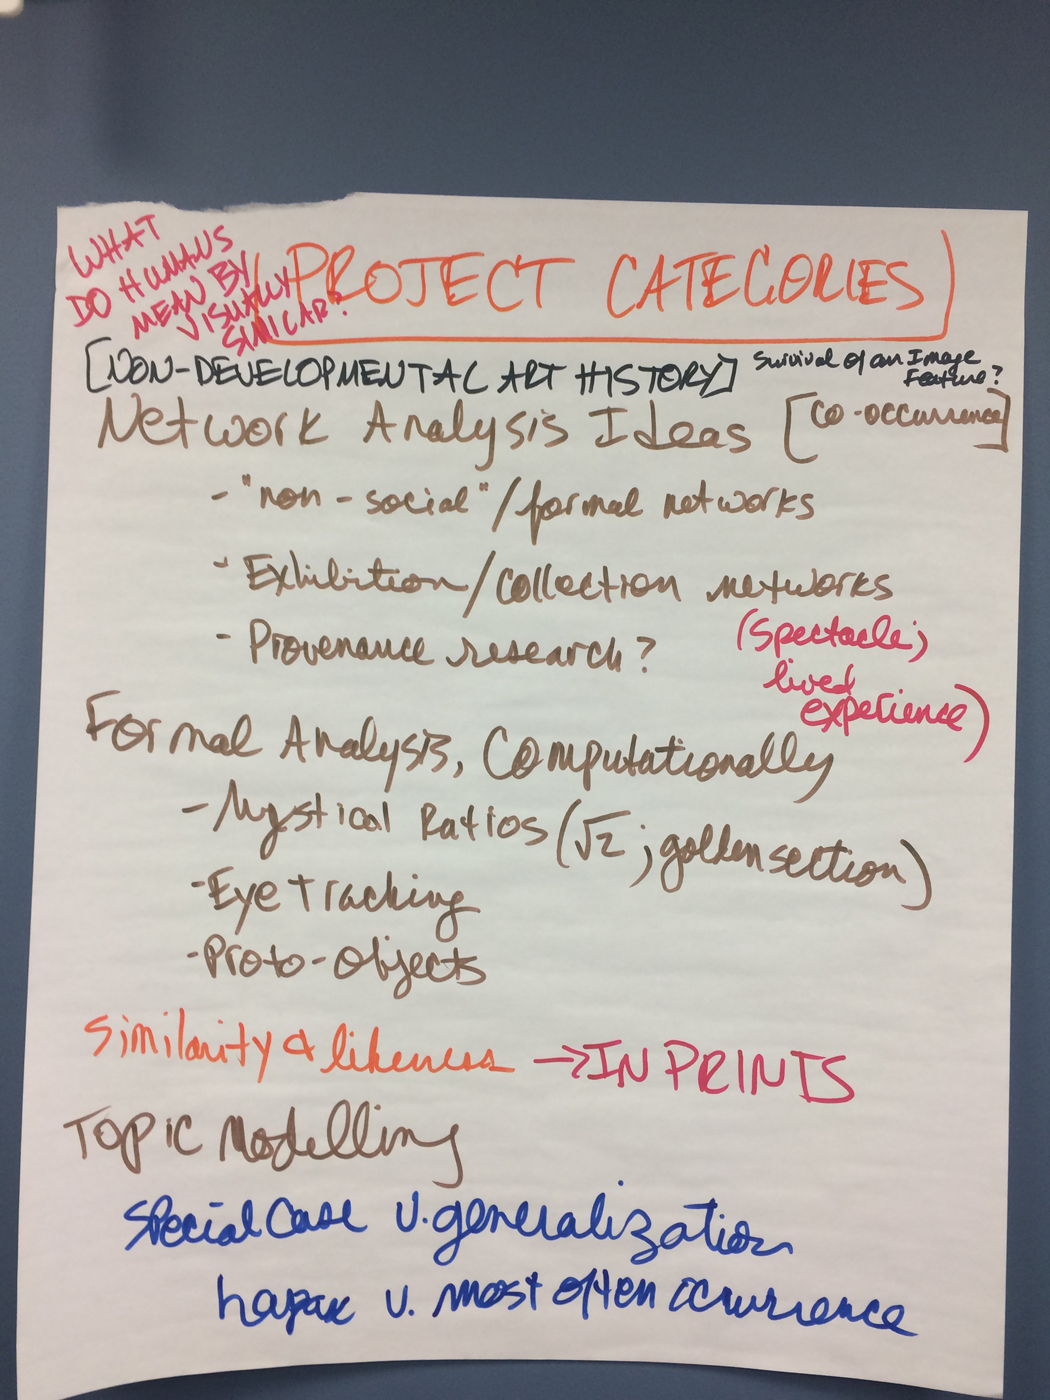 WHAT
DO HUMANS
MEAN BY
VISUALLY
SIMILAR?
PROJECT CATEGORIES
[NON-DEVELOPMENTAL ART HISTORY]
Survival of an Image
Feature?
Network Analysis Ideas [co-occurrence]
- "non-social"/formal networks
- Exhibition/collection networks
- Provenance research?
(Spectacle;
lived
experience)
Formal Analysis, Computationally
- Mystical Ratios (√2; golden section)
- Eye tracking
- Proto-objects
Similarity & likeness → IN PRINTS
Topic Modelling
Special Case v. generalization
hapax v. most often occurrence